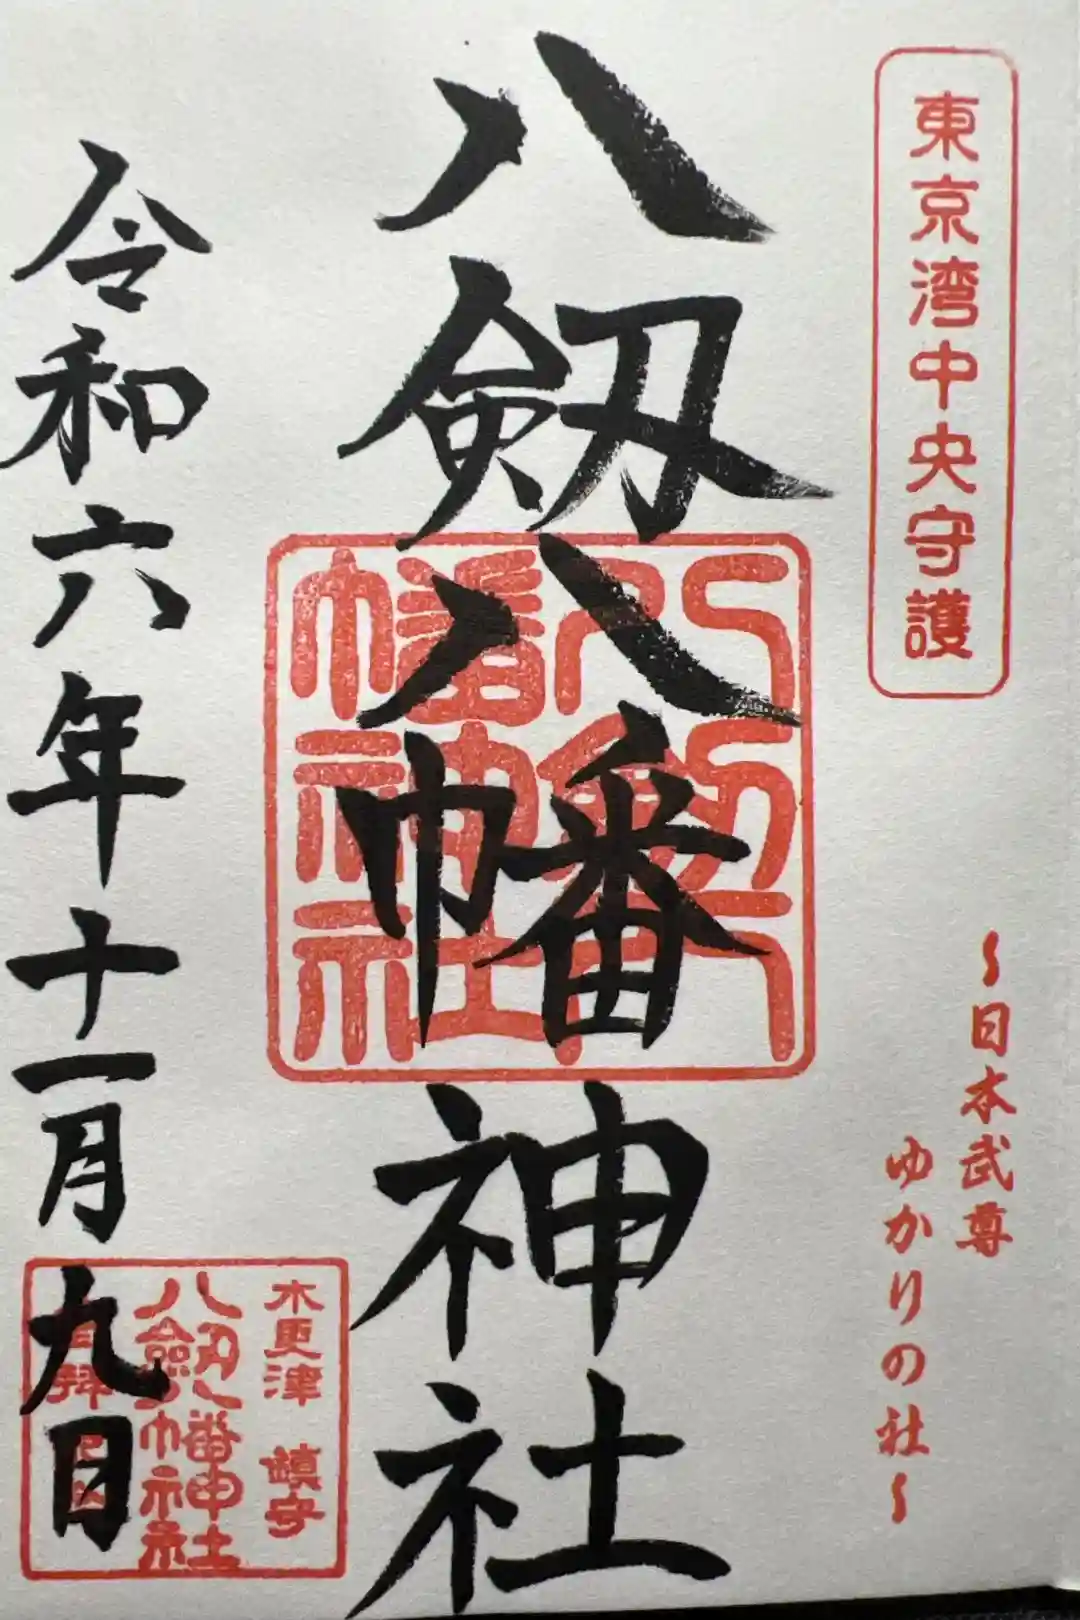 東京湾中央守護
〜日本武尊
ゆかりの社〜
八剱八幡神社
八剱八幡神社
木更津 鎮守
八剱八幡神社
令和六年十一月九日